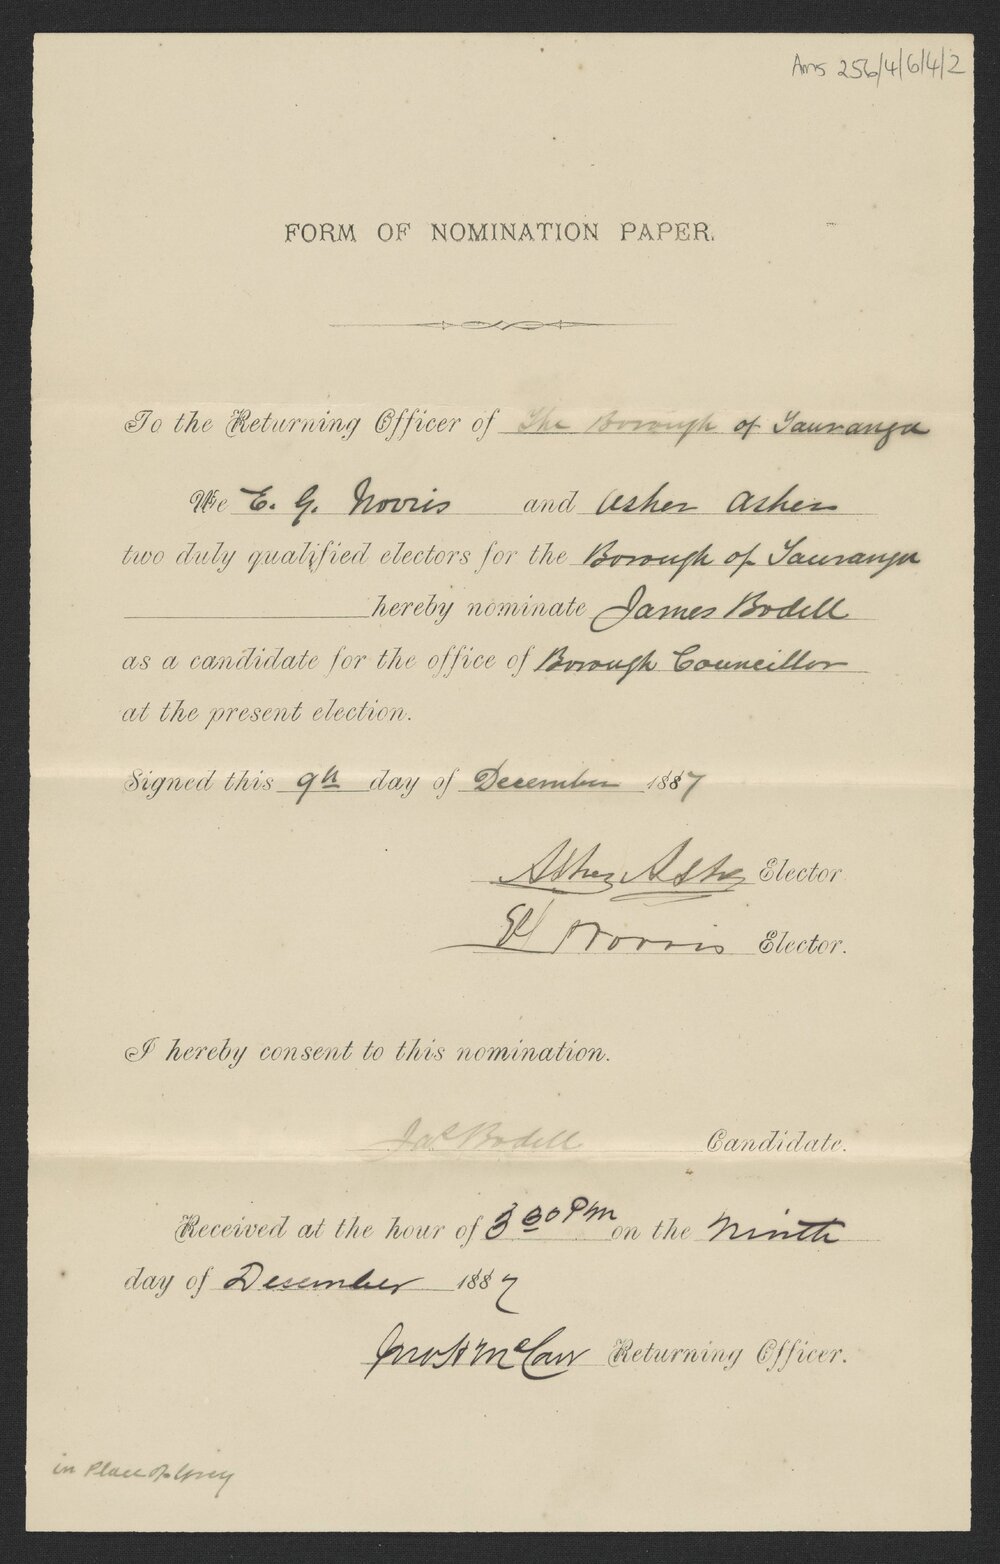 Ams 256/4/6/4/2
FORM OF NOMINATION PAPER.
To the Returning Officer of The Borough of Tauranga
We E. G. Norris and Asher Asher
two duly qualified electors for the Borough of Tauranga
hereby nominate James Bodell
as a candidate for the office of Borough Councillor
at the present election.
Signed this 9th day of December 1887
Asher Asher Elector
EG Norris Elector.
I hereby consent to this nomination.
Jas Bodell Candidate.
Received at the hour of 3 30 PM on the Ninth
day of December 1887
Returning Officer.
in Place of Grey